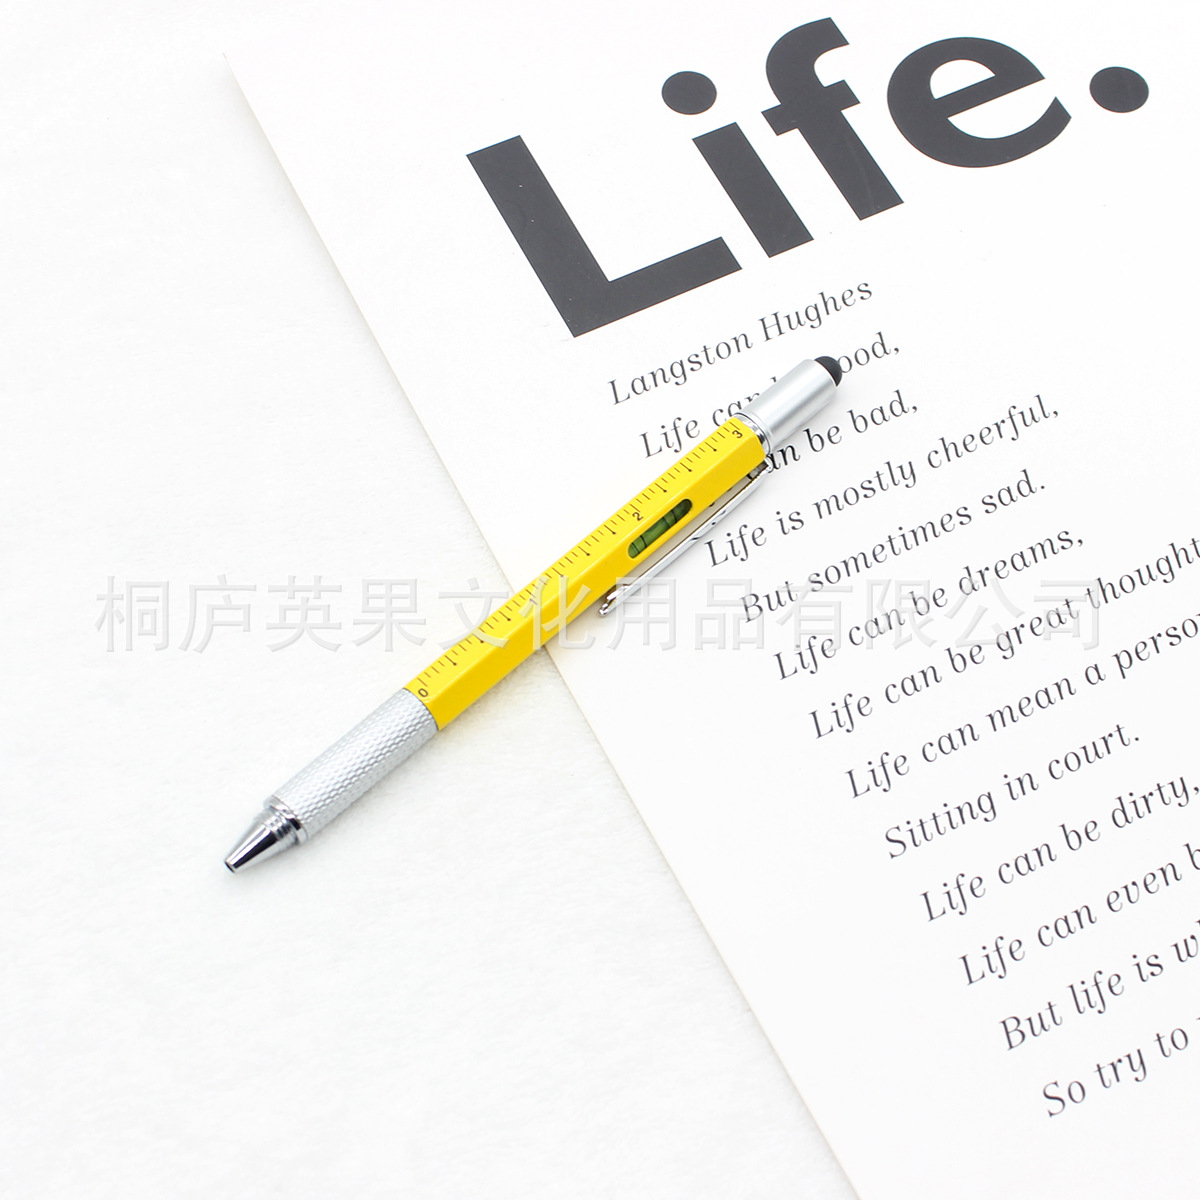 Life.
Langston Hughes
Life can ood,
an be bad,
Life is mostly cheerful,
But sometimes sad.
Life can be dreams,
Life can be great thought
Life can mean a perso
Sitting in court.
Life can be dirty,
Life can even b
But life is w
So try to
0
2
3
桐庐英果文化用品有限公司